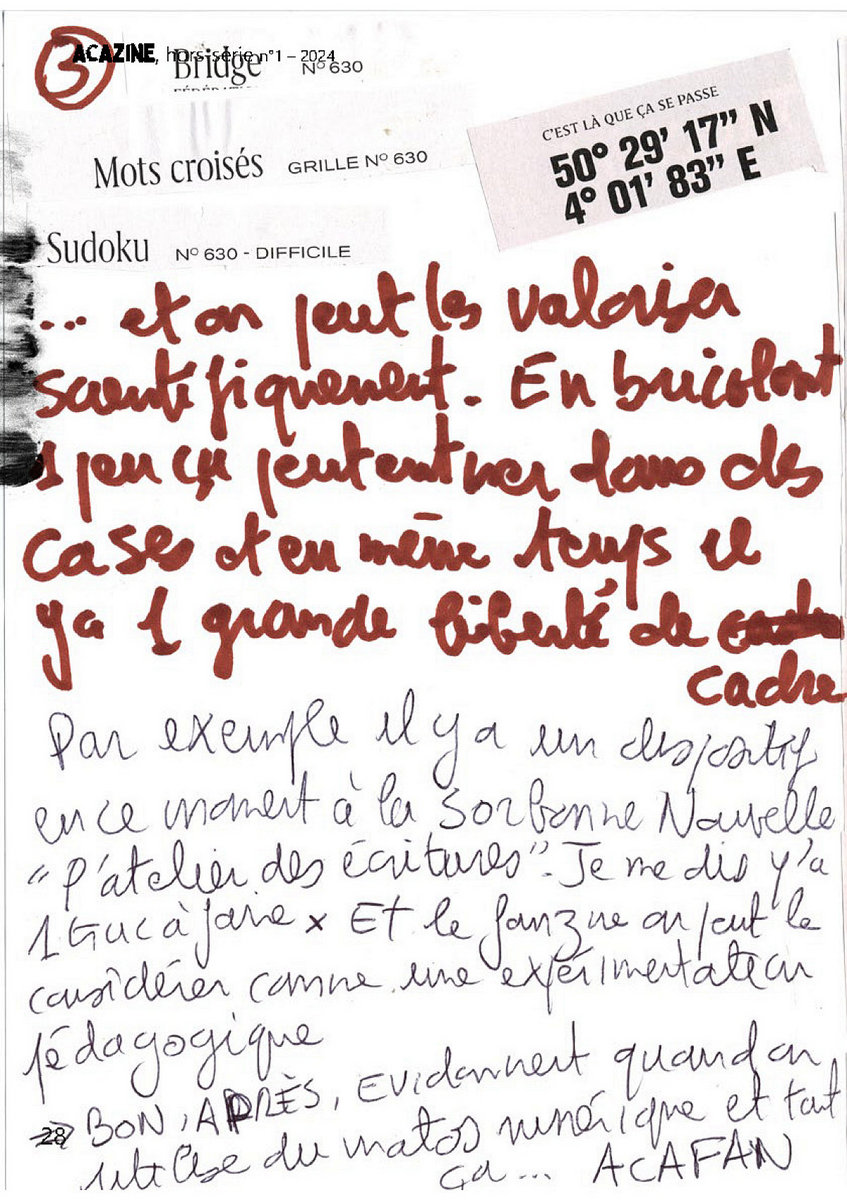 3
ACAZINE, hors-série n°1 – 2024
Bridge N° 630
Mots croisés GRILLE N° 630
C'EST LÀ QUE ÇA SE PASSE
50° 29' 17” N
4° 01' 83” E
Sudoku N° 630 - DIFFICILE
... et on peut les valoriser
scientifiquement. En bricolant
1 peu ça peut entrer dans des
cases et en même temps il
y a 1 grande liberté de
cadre
Par exemple il y a un dispositif
en ce moment à la Sorbonne Nouvelle
“l'atelier des écritures”. Je me dis y'a
1 truc à faire x Et le fanzine on peut le
considérer comme une expérimentation
pédagogique
BON, APRÈS, Evidemment quand on
28
utilise du matos numérique et tout
ça... ACAFAN